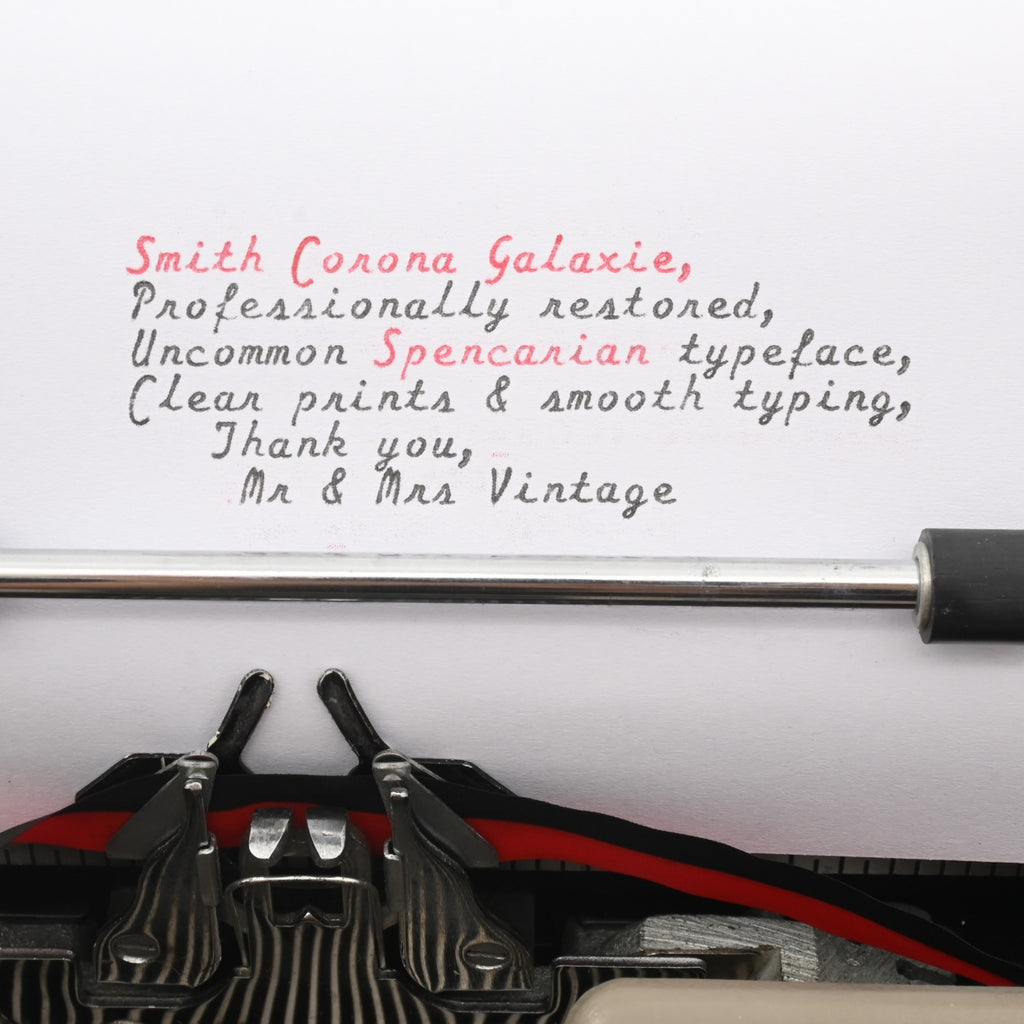 Smith Corona Galaxie,
Professionally restored,
Uncommon Spencarian typeface,
Clear prints & smooth typing,
Thank you,
Mr & Mrs Vintage